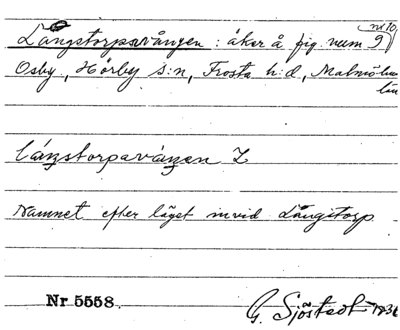 nr 10
Långstorpsvången : åker å fig. num 9
Osby, Hörby s:n, Frosta h:d, Malmöhus
län
Namnet efter läget invid Långstorp
Nr 5558.
G. Sjöstedt 193